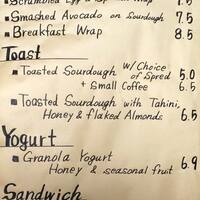 Scrambled Egg & Spinach Wrap 7.5
Smashed Avocado on Sourdough 7.5
Breakfast Wrap 8.5
Toast
Toasted Sourdough W/ Choice
of Spred 5.0
+ Small Coffee 6.5
Toasted Sourdough with Tahini,
Honey & flaked Almonds 6.5
Yogurt
Granola Yogurt
Honey & seasonal fruit 6.9
Sandwich